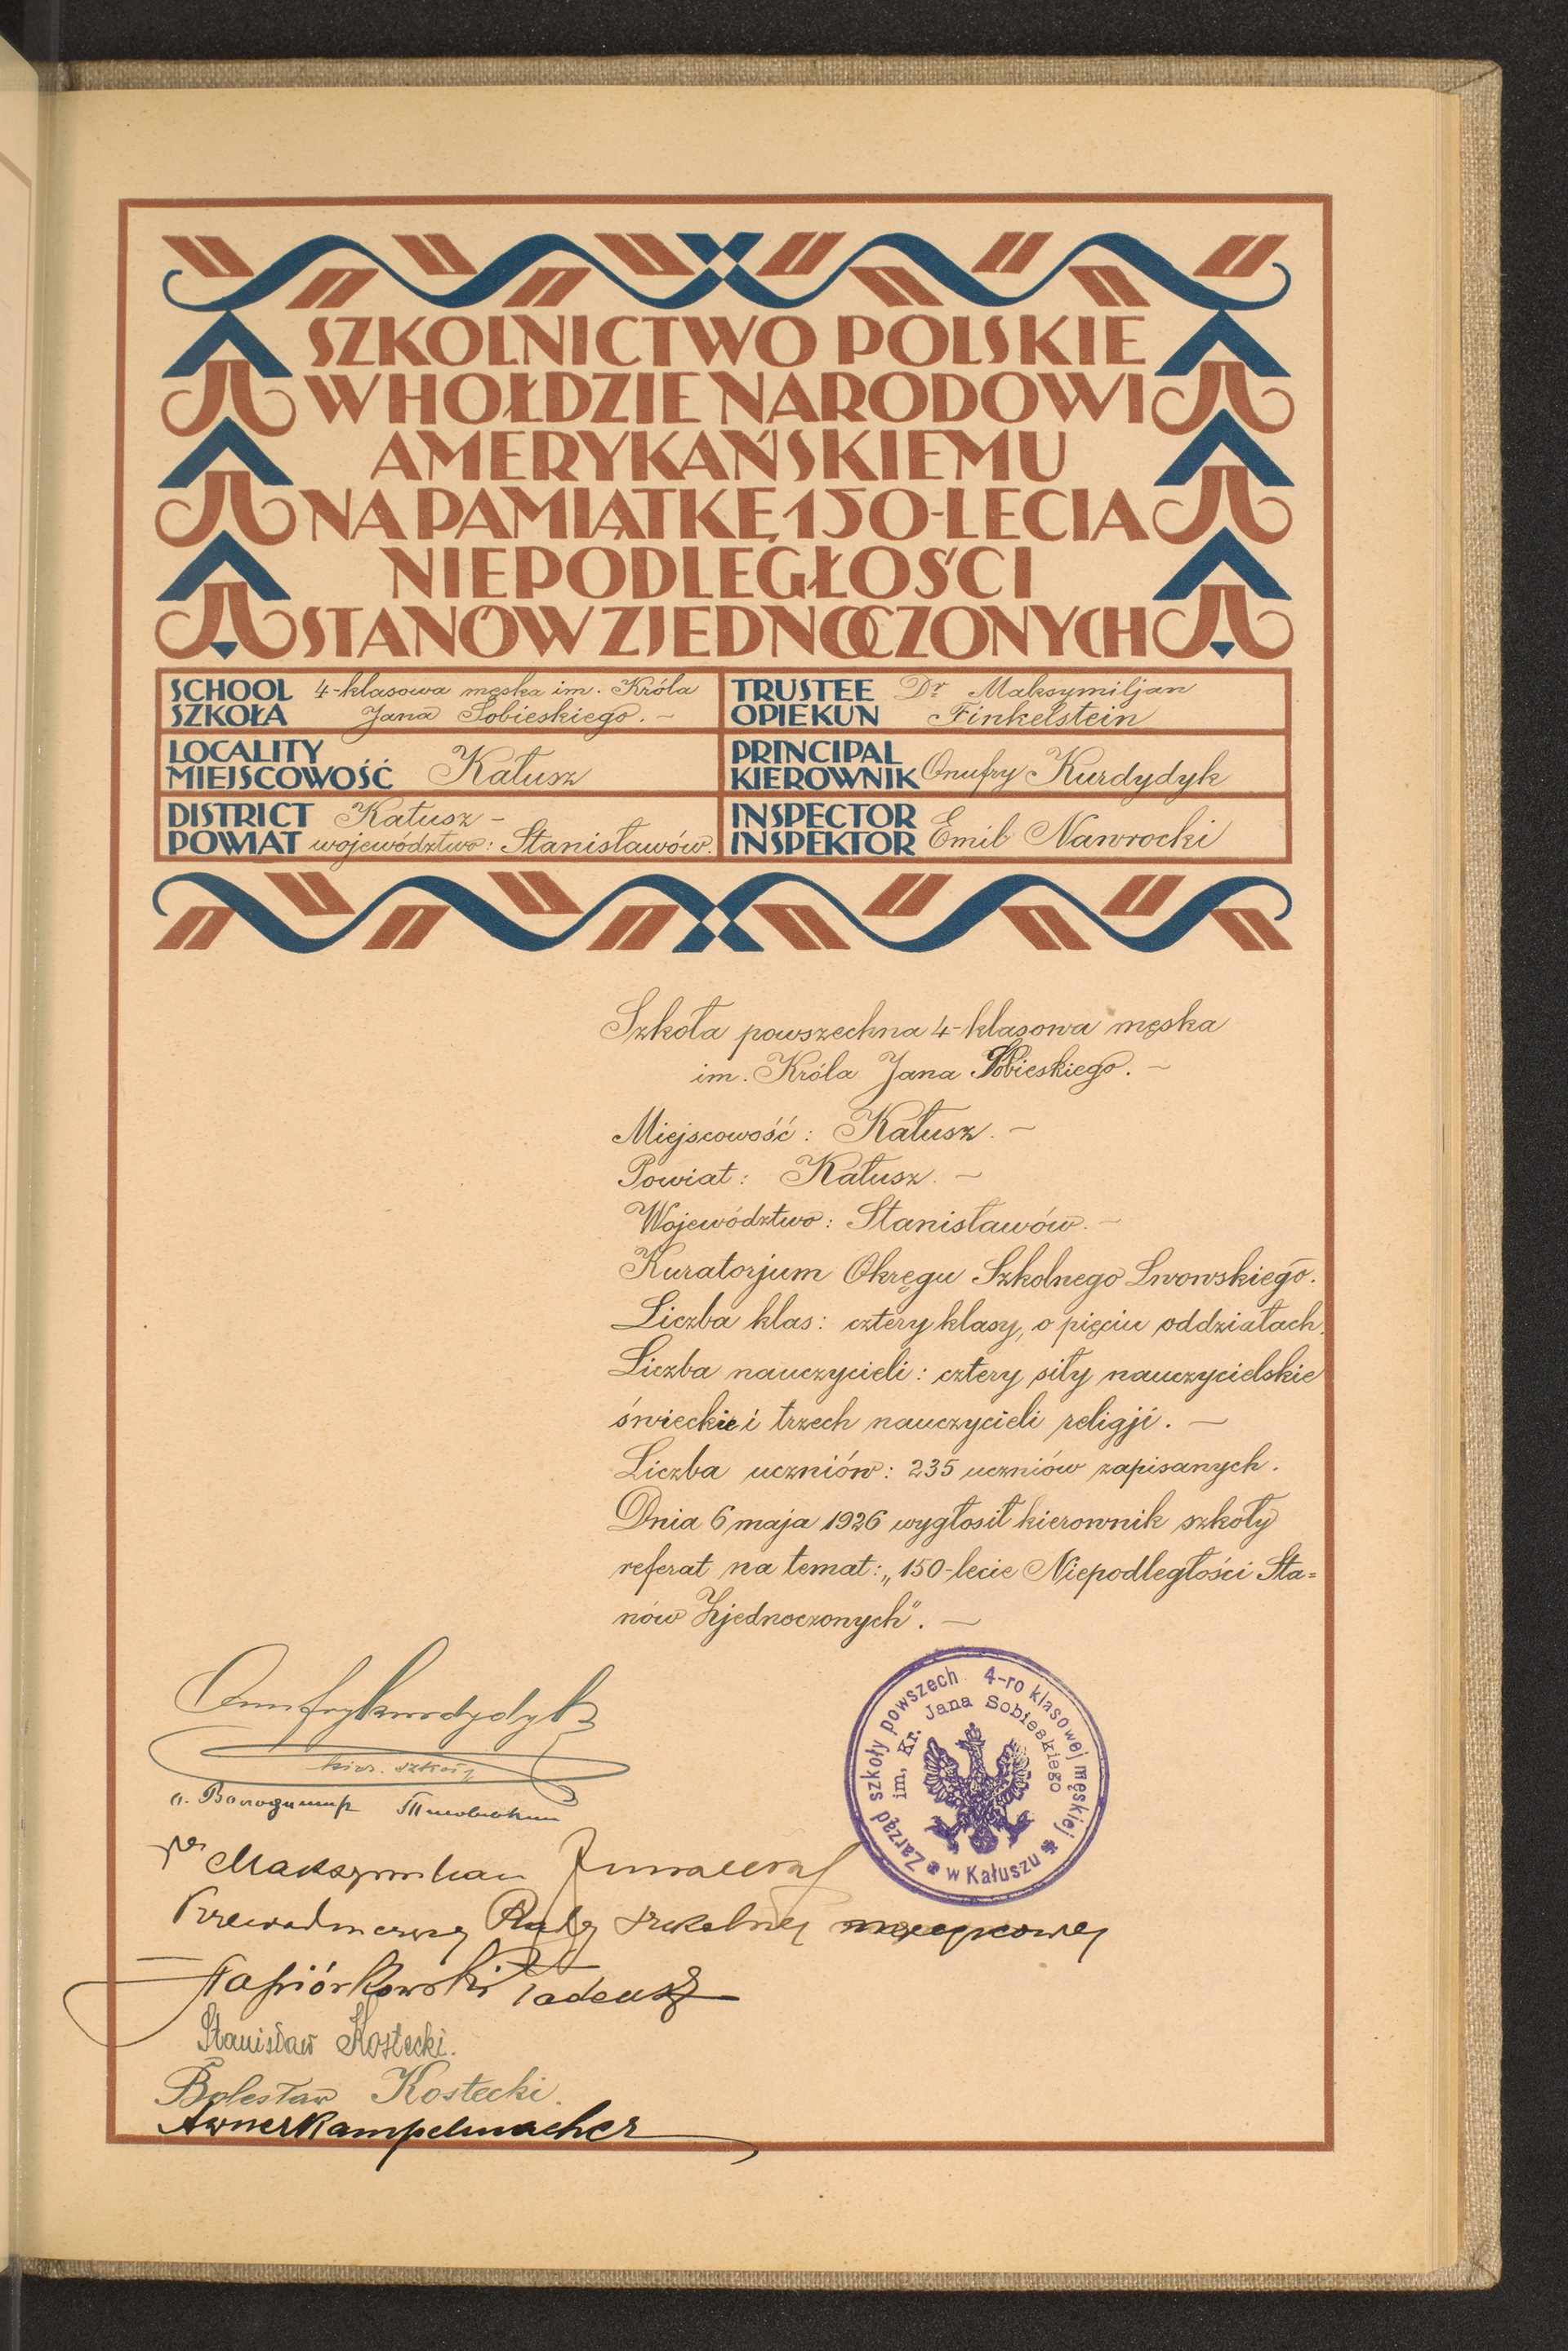 SZKOLNICTWO POLSKIE
W HOŁDZIE NARODOWI
AMERYKAŃSKIEMU
NA PAMIĄTKĘ 150-LECIA
NIEPODLEGŁOŚCI
STANÓW ZJEDNOCZONYCH
SCHOOL 4-klasowa męska im. Króla
SZKOŁA Jana Sobieskiego. -
TRUSTEE Dr Maksymiljan
OPIEKUN Finkelstein
LOCALITY
MIEJSCOWOŚĆ Kałusz
PRINCIPAL
KIEROWNIK Onufry Kurdydyk
DISTRICT Kałusz -
POWIAT województwo: Stanisławów.
INSPECTOR
INSPEKTOR Emil Nawrocki
Szkoła powszechna 4-klasowa męska
im. Króla Jana Sobieskiego. -
Miejscowość: Kałusz. -
Powiat: Kałusz. -
Województwo: Stanisławów. -
Kuratorjum Okręgu Szkolnego Lwowskiego.
Liczba klas: cztery klasy, o pięciu oddziałach.
Liczba nauczycieli: cztery siły nauczycielskie
świeckie i trzech nauczycieli religji. -
Liczba uczniów: 235 uczniów zapisanych.
Dnia 6 maja 1926 wygłosił kierownik szkoły
referat na temat: „150-lecie Niepodległości Sta=
nów Zjednoczonych". -
Onufry Kurdydyk
kier. szkoły
Zarząd szkoły powszech. 4-ro klasowej męskiej
im. Kr. Jana Sobieskiego
w Kałuszu
Przewodniczący Rady szkolnej miejscowej
Napiórkowski Tadeusz
Stanisław Kostecki.
Bolesław Kostecki.
Awner Kampelmacher